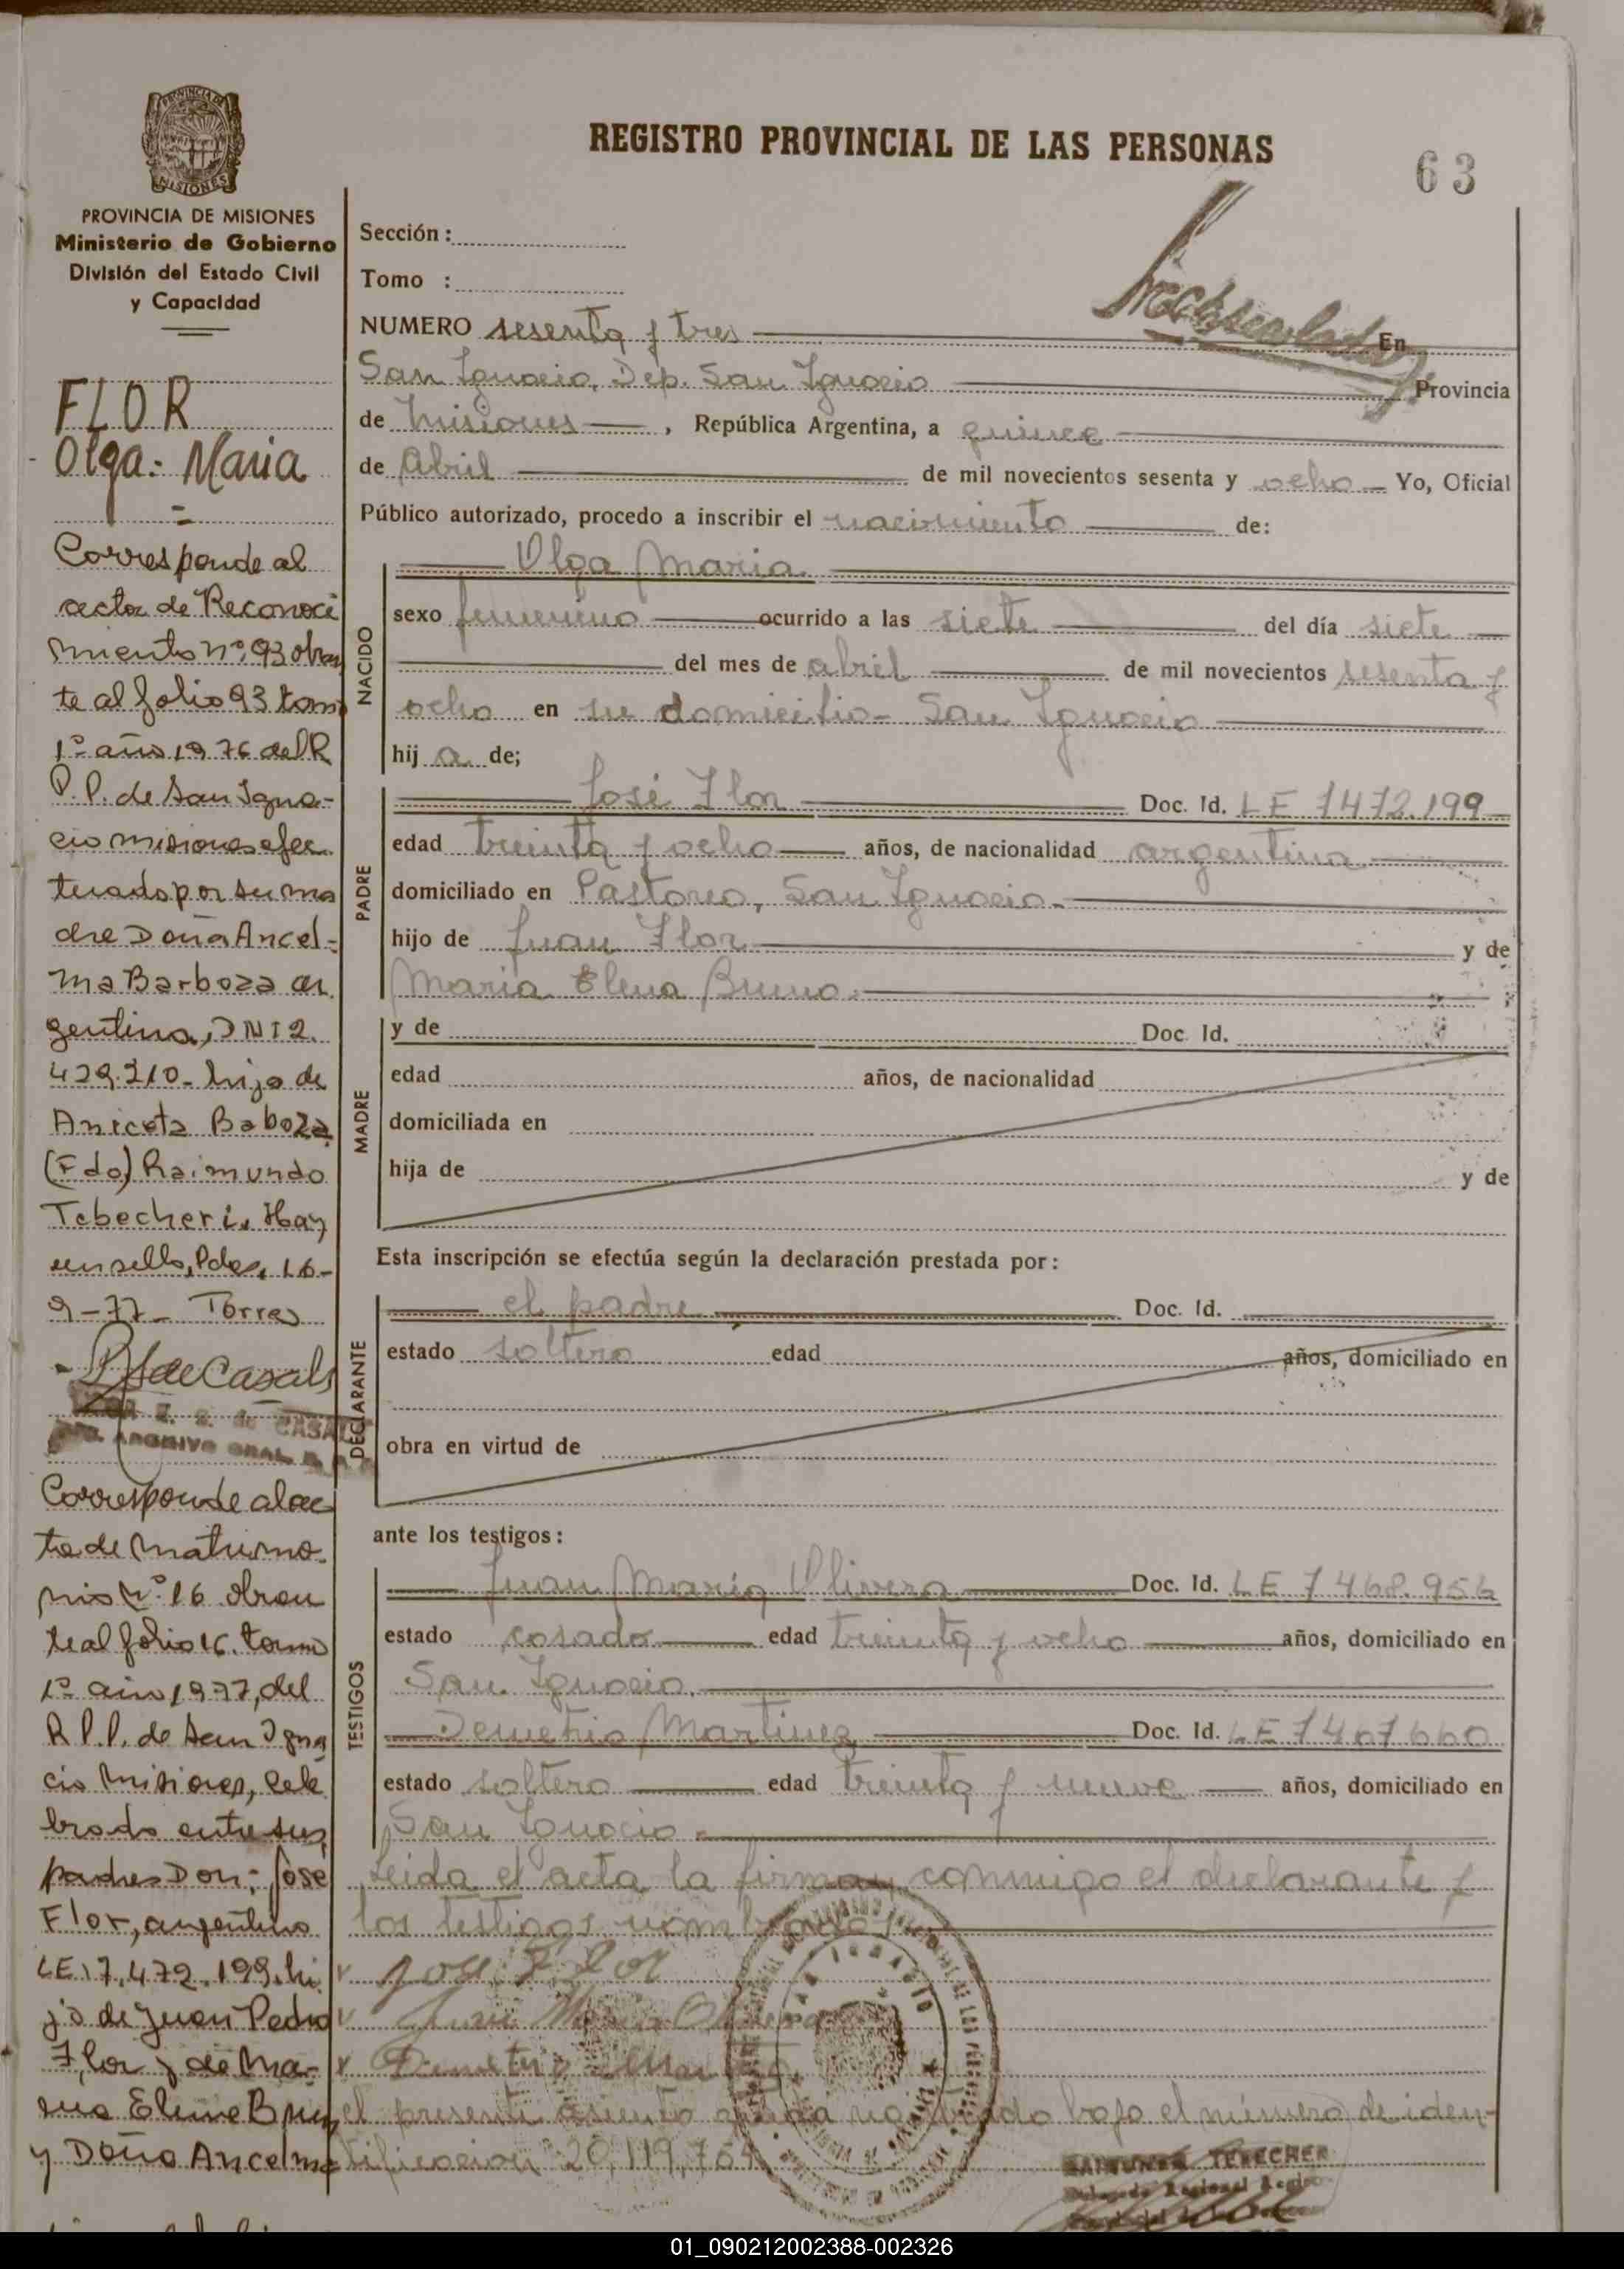 REGISTRO PROVINCIAL DE LAS PERSONAS
63
PROVINCIA DE
MISIONES
PROVINCIA DE MISIONES
Ministerio de Gobierno
División del Estado Civil
y Capacidad
FLOR
Olga: Maria
=
Corresponde al
acta de Reconoci
miento nº 93 obran
te al folio 93 tomo
1º año 1976 del R
P.P. de San Igna-
cio misiones efec
tuado por su ma
dre Doña Ancel-
ma Barboza ar
gentina, DNI 2.
429.210- hija de
Aniceta Baboza
(Fdo) Raimundo
Tebecheri. Hay
un sello, Pdas, 16-
9-77- Torres
de Casals
E. S. de CASALS
ARCHIVO GRAL.
Corresponde al ac
ta de Matrimo-
nio Nº 16 obran
te al folio 16 tomo
1º año 1977, del
R.P.P. de San Igna
cio Misiones, Cele
brado entre sus
padres Don: José
Flor, argentino
LE: 7.472.199. hi
jo de Juan Pedro
Flor y de Ma-
ria Elena Bruno
y Doña Ancelma
Sección :
Tomo :
NUMERO sesenta y tres En
San Ignacio, Dep. San Ignacio Provincia
de Misiones, República Argentina, a quince
de Abril de mil novecientos sesenta y ocho Yo, Oficial
Público autorizado, procedo a inscribir el nacimiento de:
NACIDO
Olga Maria
sexo femenino ocurrido a las siete del día siete
del mes de abril de mil novecientos sesenta y
ocho en su domicilio- San Ignacio
hij a de;
PADRE
José Flor Doc. Id. LE 7472.199
edad treinta y ocho años, de nacionalidad argentina
domiciliado en Pastoreo, San Ignacio.
hijo de Juan Flor y de
Maria Elena Bruno.
MADRE
y de Doc. Id.
edad años, de nacionalidad
domiciliada en
hija de y de
Esta inscripción se efectúa según la declaración prestada por:
DECLARANTE
el padre Doc. Id.
estado soltero edad años, domiciliado en
obra en virtud de
ante los testigos:
TESTIGOS
Juan Maria Olivera Doc. Id. LE 7468.956
estado casado edad treinta y ocho años, domiciliado en
San Ignacio.
Demetrio Martinez Doc. Id. LE 7467660
estado soltero edad treinta y nueve años, domiciliado en
San Ignacio.
Leida el acta la firman conmigo el declarante y
los testigos nombrados
José Flor
Juan Maria Olivera
Demetrio Martinez
el presente asiento queda registrado bajo el número de iden-
tificacion 20,119,764
RAIMUNDO TEBECHER
Delegado Regional
01_090212002388-002326